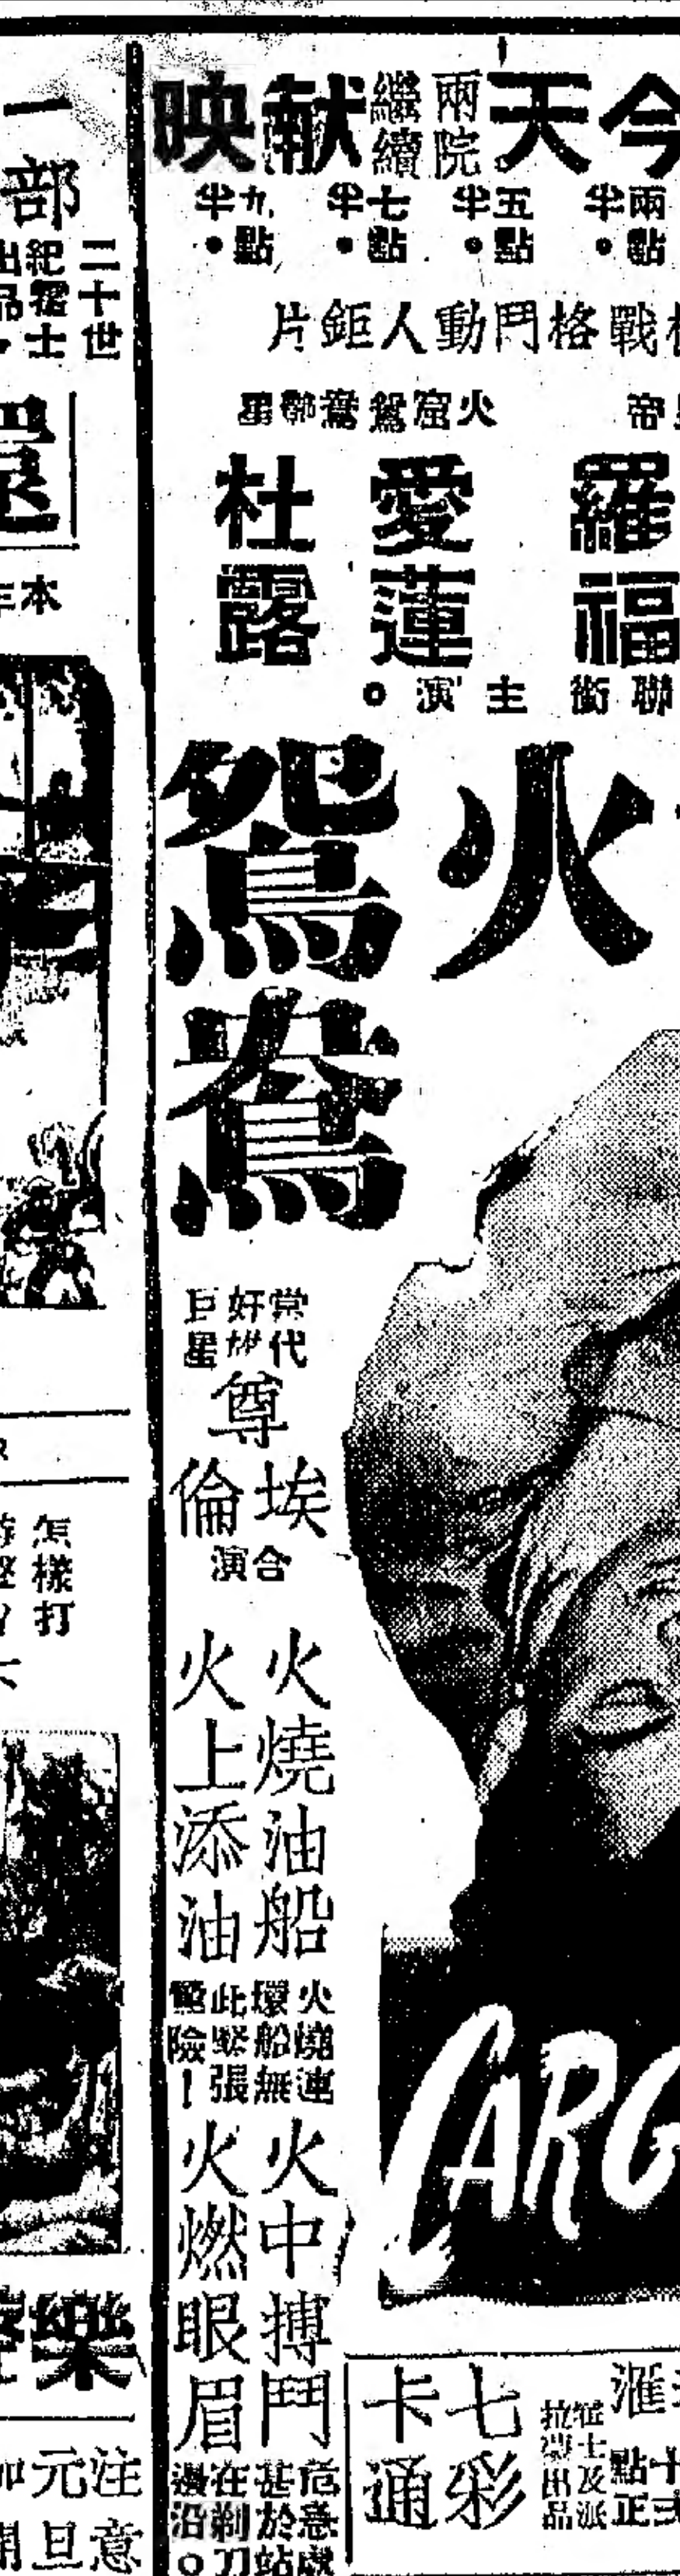 今天
兩院
繼續
献映
兩點半。
五點半。
七點半。
九點半。
戰格鬥動人鉅片
火窟鴛鴦聯星
羅福
愛蓮
杜露
聯銜主演。
火
鴛鴦
當代
奸雄
巨星
尊
埃倫
合演
火燒油船
火上添油
火燒連
環船無
此緊張
驚險！
火中搏鬥
火燃眼眉
危急處
甚於站
在剃刀
邊沿。
CARG
七彩
卡通
滙
點正
一部
二十世
紀霍士
出品，
還
本年
怎樣打
樂
注意
元旦